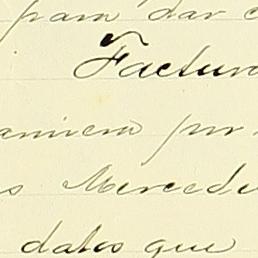 para dar c
Factura
aniera por
s Mercede
datos que